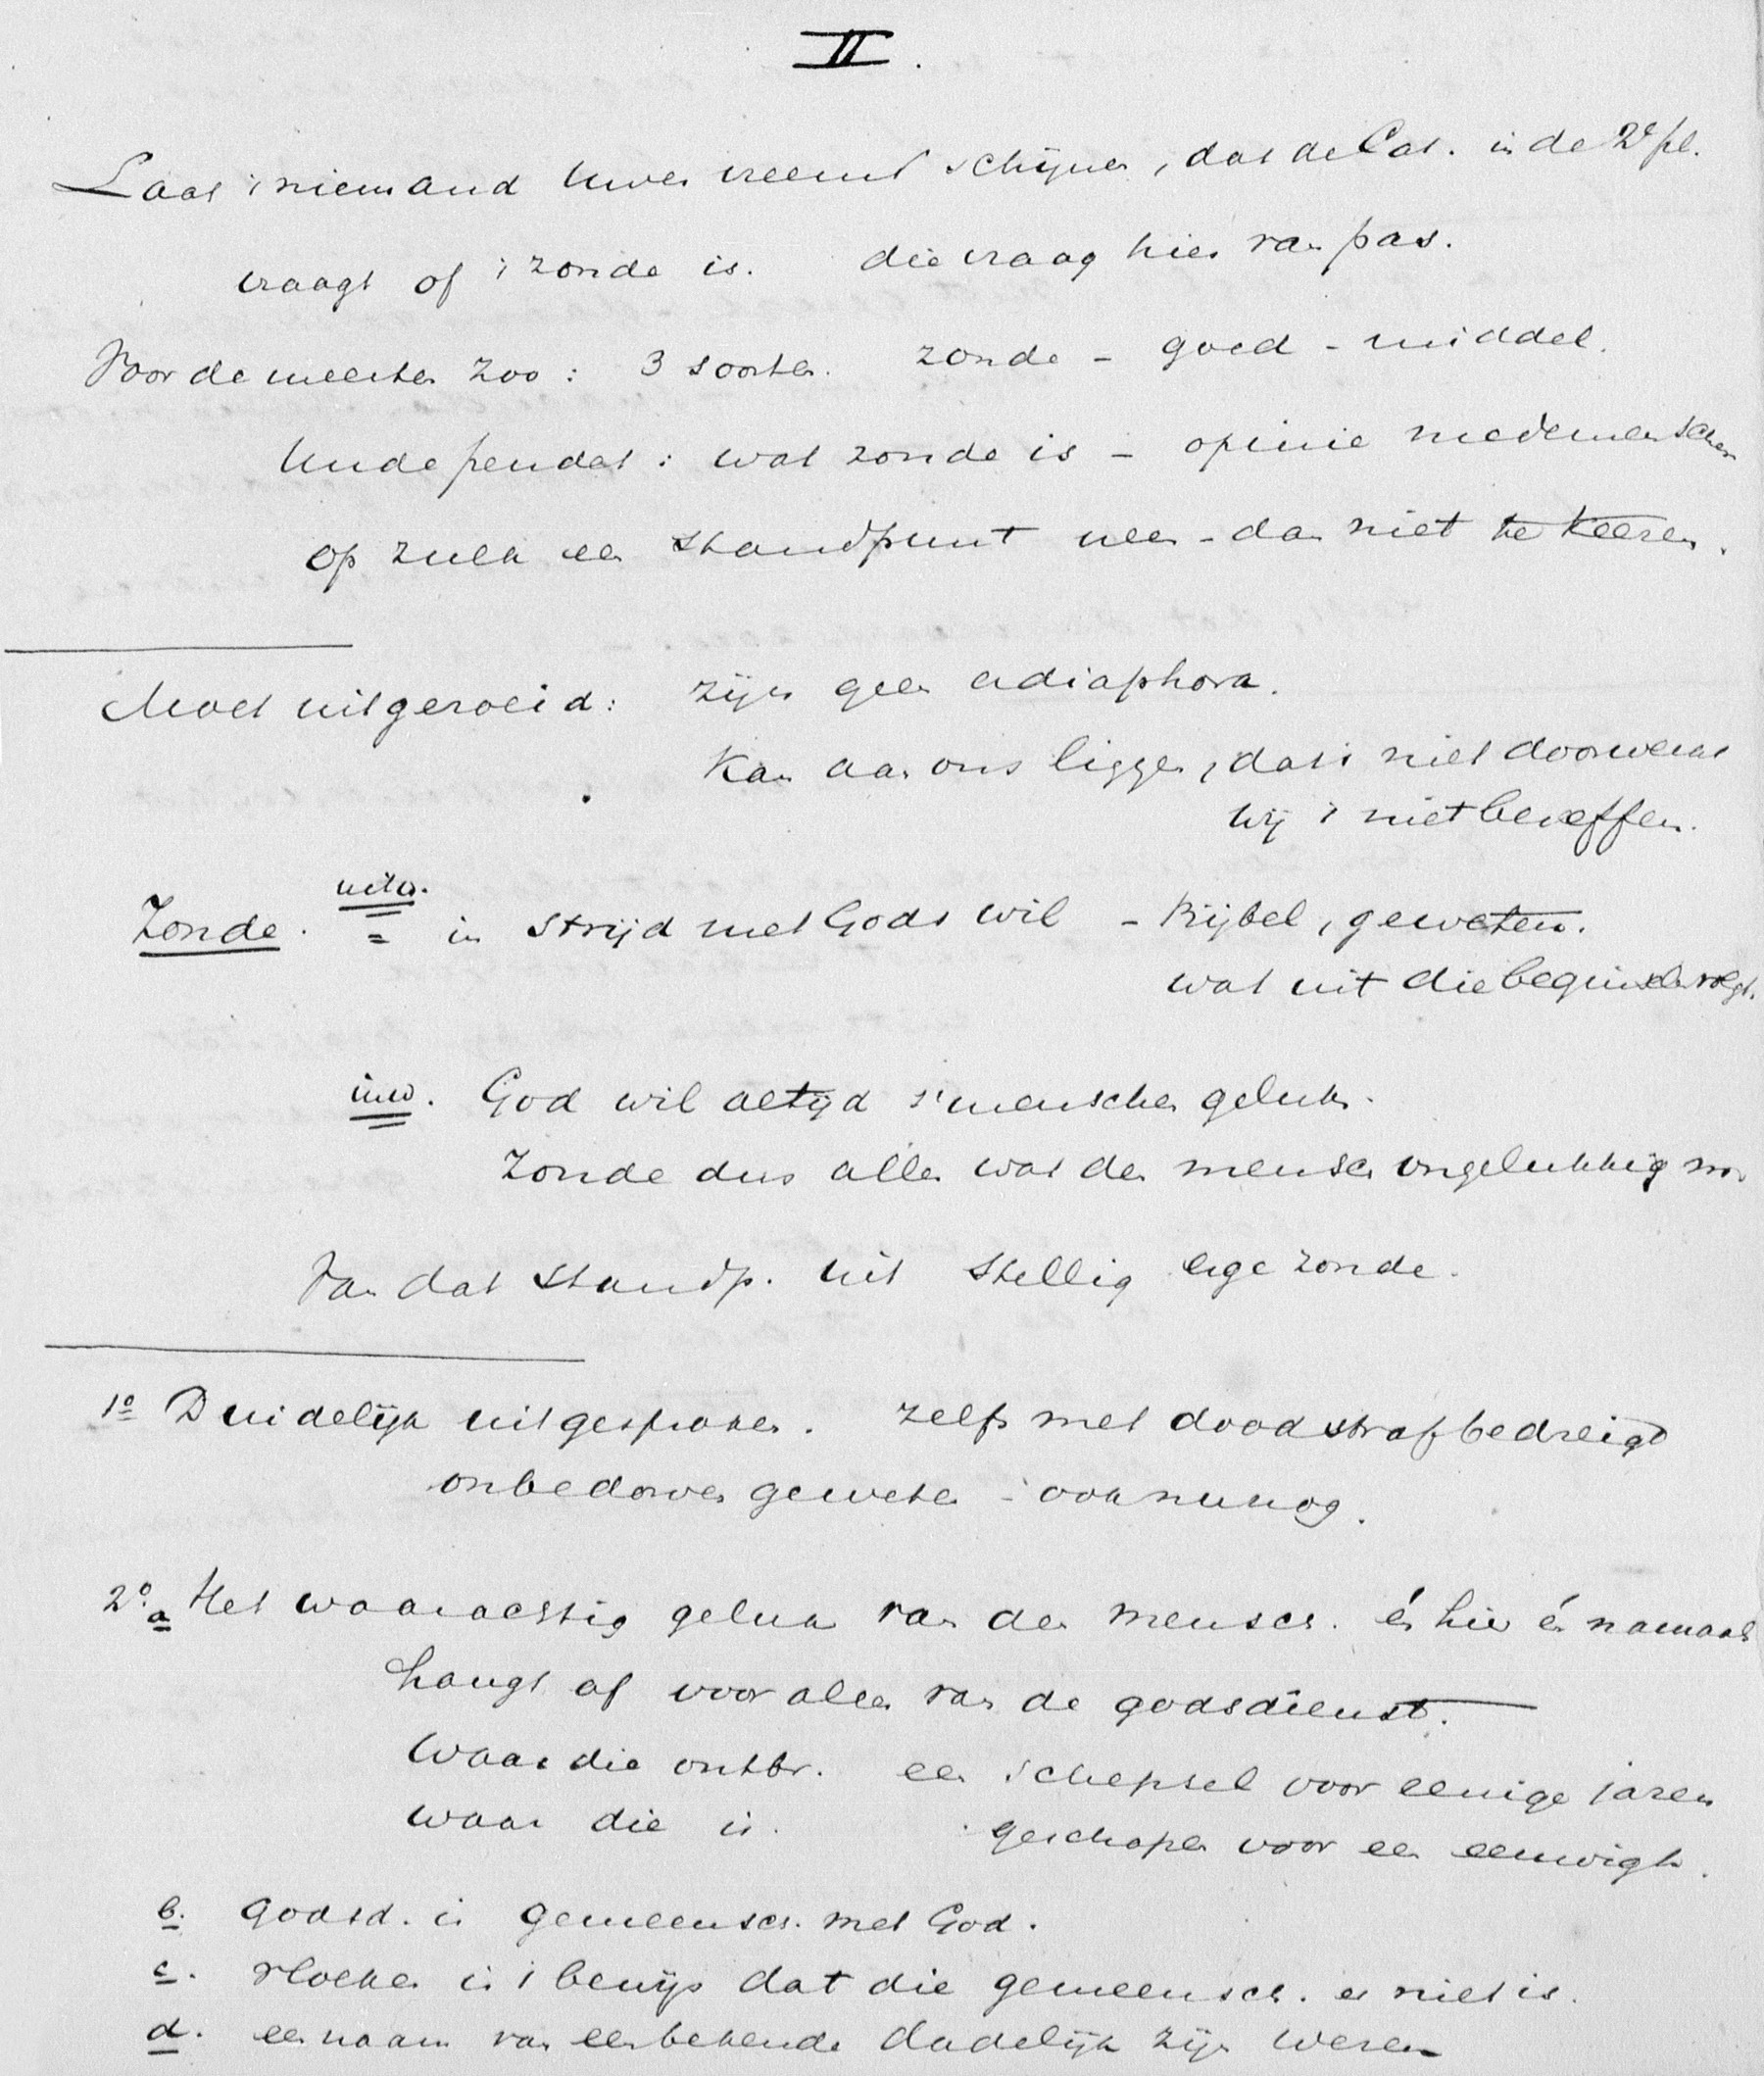 II.
Laat 't niemand Uwer vreemd schijnen, dat de Cat. in de 2e pl.
vraagt of 't zonde is. die vraag hier van pas.
Voor de meesten zoo: 3 soorten. zonde - goed - middel.
wat zonde is - opinie medemenschen
op zulk een standpunt neen - dan niet te keeren.
Moet uitgeroeid: zijn geen adiaphora.
Kan aan ons liggen, dat 't niet doorwerkt
wij 't niet beseffen.
Zonde. uitw. = in strijd met Gods wil - Bijbel, geweten.
wat uit die beginselen volgt.
inw. God wil altijd 's menschen geluk.
Zonde dus alles wat den mensch ongelukkig m.
Van dat standp. uit stellig erge zonde.
1o Duidelijk uitgesproken. zelfs met doodstraf bedreigd
onbedorven geweten - ook nu nog.
2o. a Het waarachtig geluk van den mensch. én hier én namaals
hangt af voor alles van de godsdienst.
Waar die ontbr. een schepsel voor eenige jaren
waar die is. geschapen voor een eeuwigh.
b. Godsd. is gemeensch. met God.
c. vloeken is 't bewijs dat die gemeensch. er niet is.
d. een naam van een bekende dadelijk zijn wezen